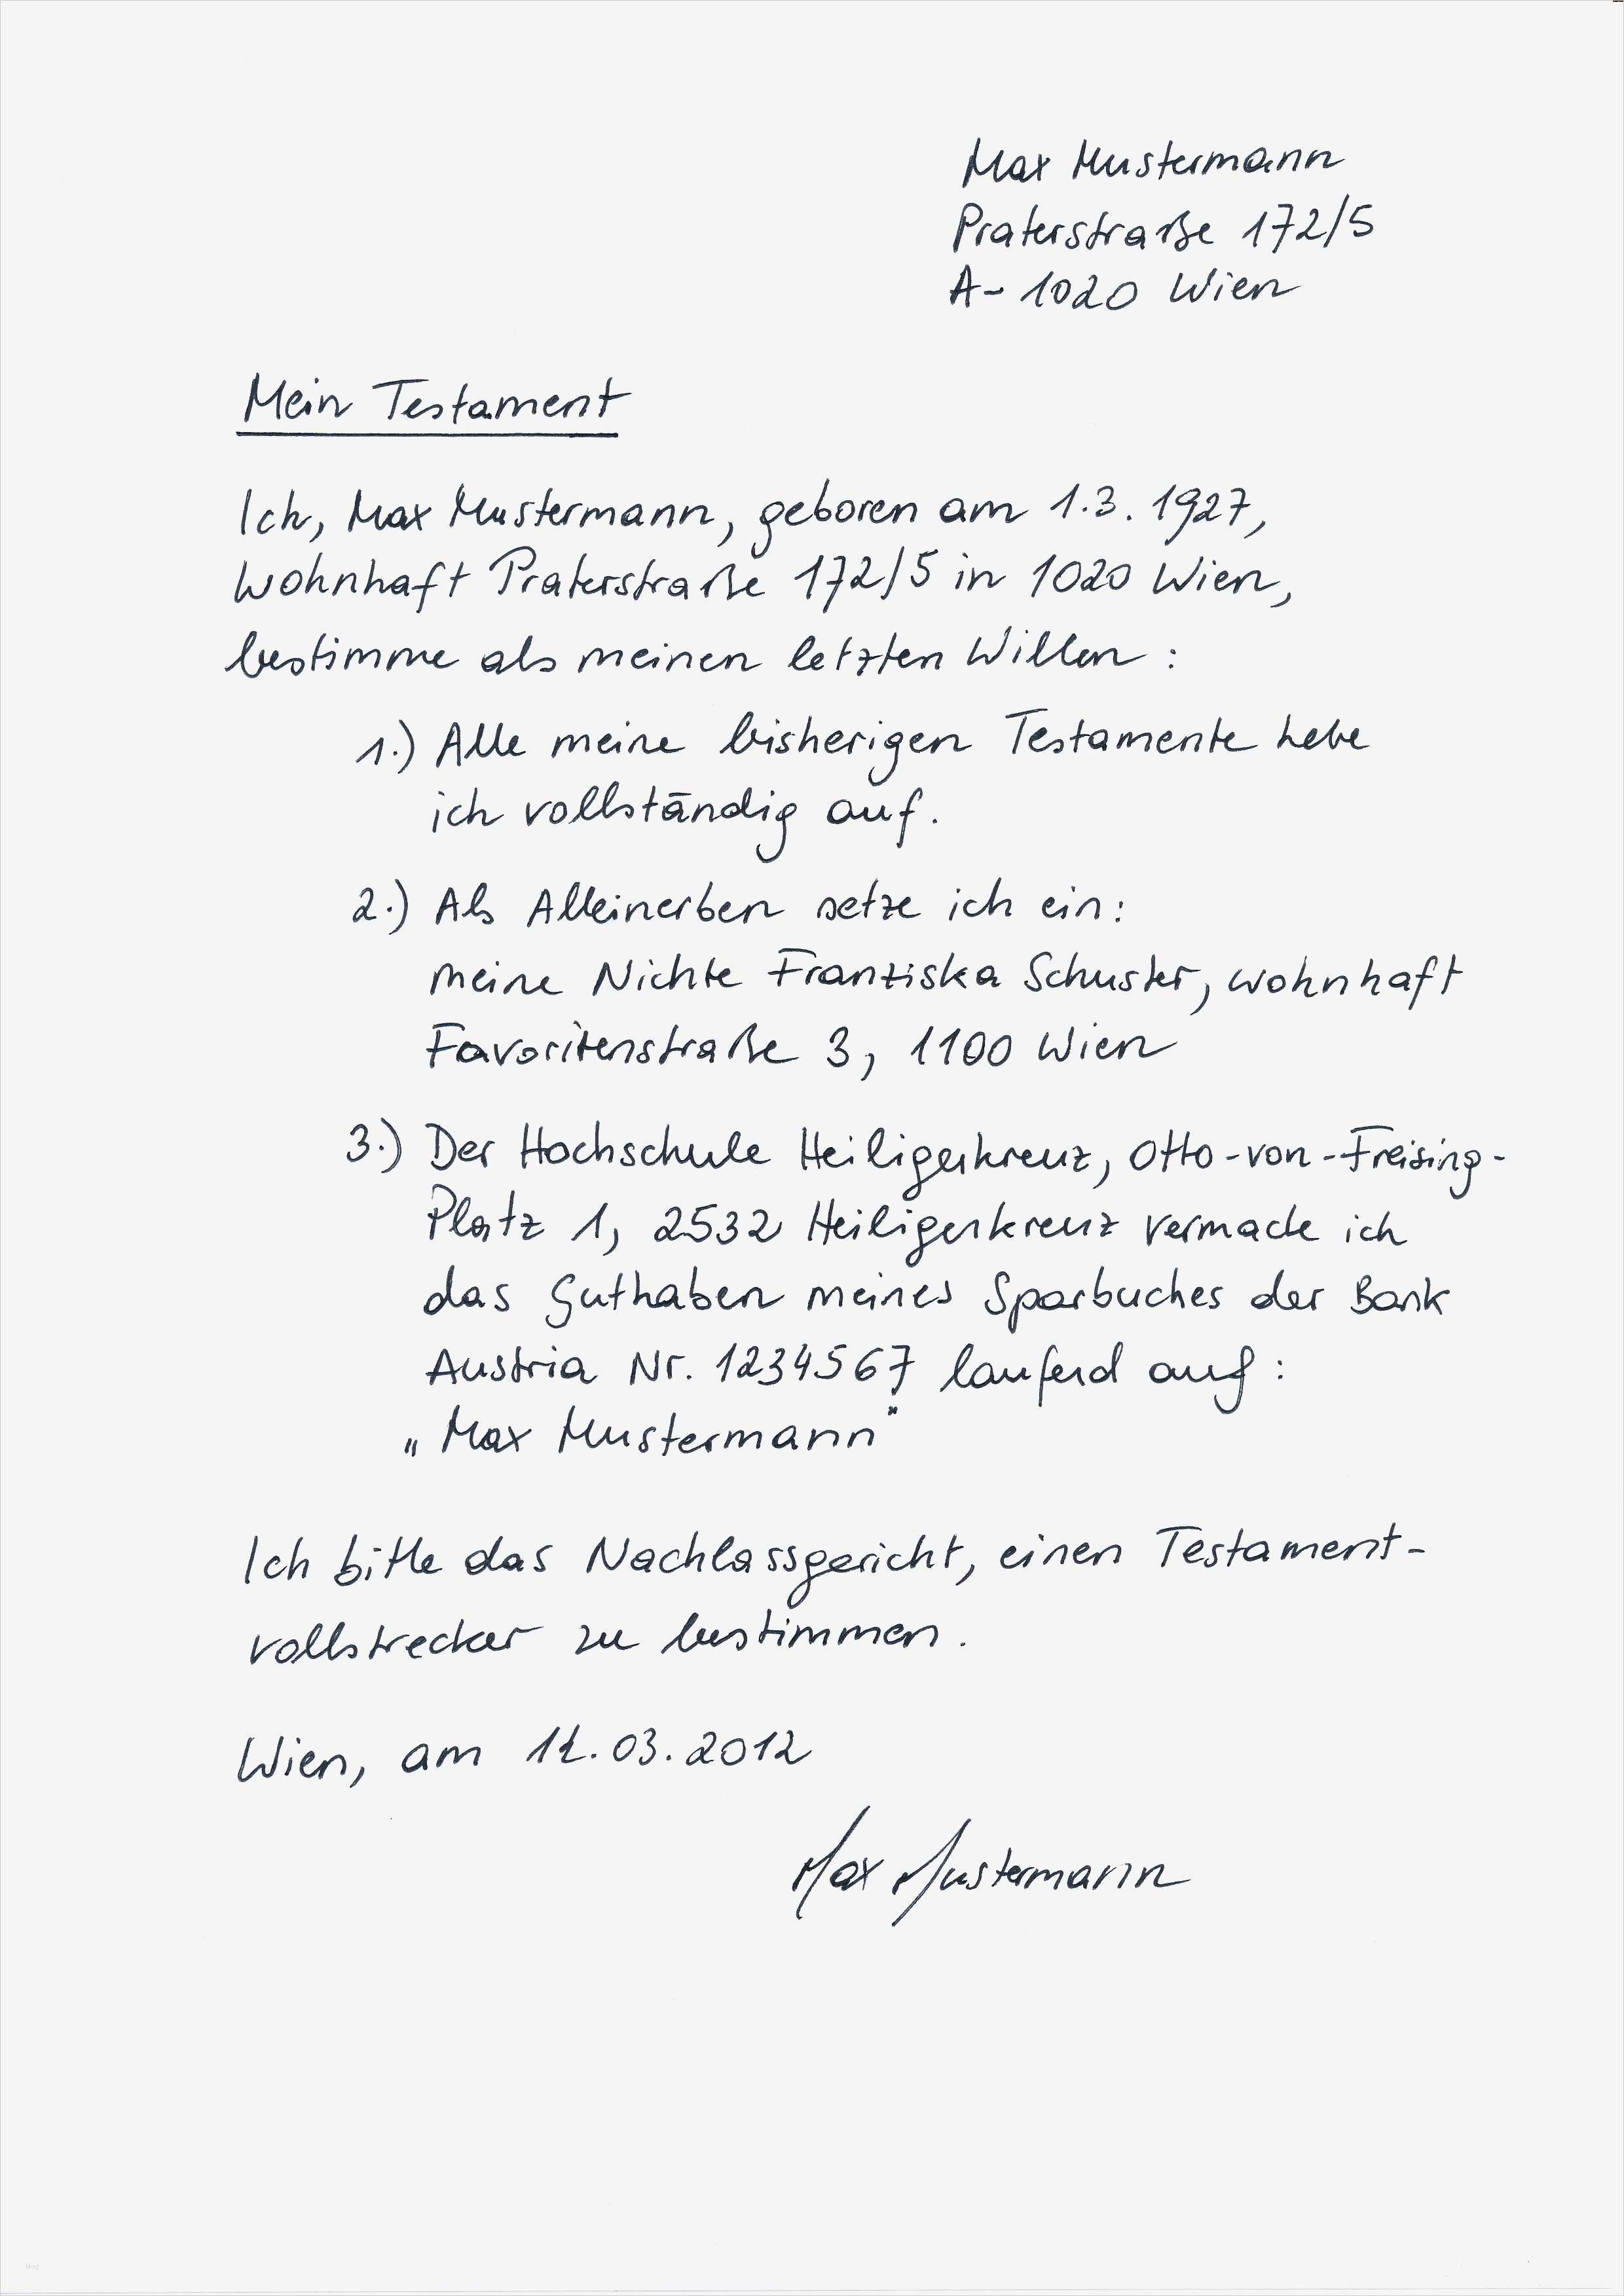 Max Mustermann
Praterstraße 172/5
A- 1020 Wien
Mein Testament
Ich, Max Mustermann, geboren am 1.3.1927,
wohnhaft Praterstraße 172/5 in 1020 Wien,
bestimme als meinen letzten Willen:
1.) Alle meine bisherigen Testamente hebe
ich vollständig auf.
2.) Als Alleinerben setze ich ein:
meine Nichte Franziska Schuster, wohnhaft
Favoritenstraße 3, 1100 Wien
3.) Der Hochschule Heiligenkreuz, Otto-von-Freising-
Platz 1, 2532 Heiligenkreuz vermache ich
das Guthaben meines Sparbuches der Bank
Austria Nr. 1234567 laufend auf:
„Max Mustermann"
Ich bitte das Nachlassgericht, einen Testament-
vollstrecker zu bestimmen.
Wien, am 12.03.2012
Max Mustermann